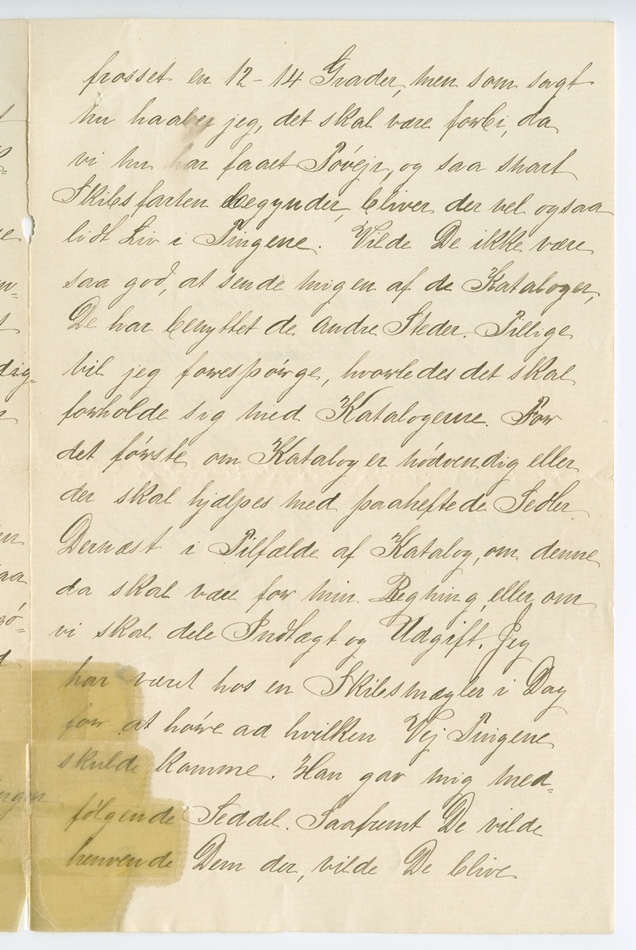 frosset en 12-14 Grader, men som sagt
nu haaber jeg, det skal være forbi, da
vi nu har faaet Tøvejr, og saa snart
Skibsfarten begynder, bliver der vel ogsaa
lidt Liv i Tingene. Vilde De ikke være
saa god, at sende mig en af de Kataloger,
De har benyttet de andre Steder. Tillige
vil jeg forespørge, hvorledes det skal
forholde sig med Katalogerne. For
det første om Katalog er nødvendig eller
der skal hjælpes med paaheftede Sedler.
Dernæst i Tilfælde af Katalog, om denne
da skal være for min Regning, eller om
vi skal dele Indtægt og Udgift. Jeg
har været hos en Skibsmægler i Dag
for at høre ad hvilken Vej Tingene
skulde komme. Han gav mig med-
følgende Seddel. Saafremt De vilde
henvende Dem der, vilde De blive